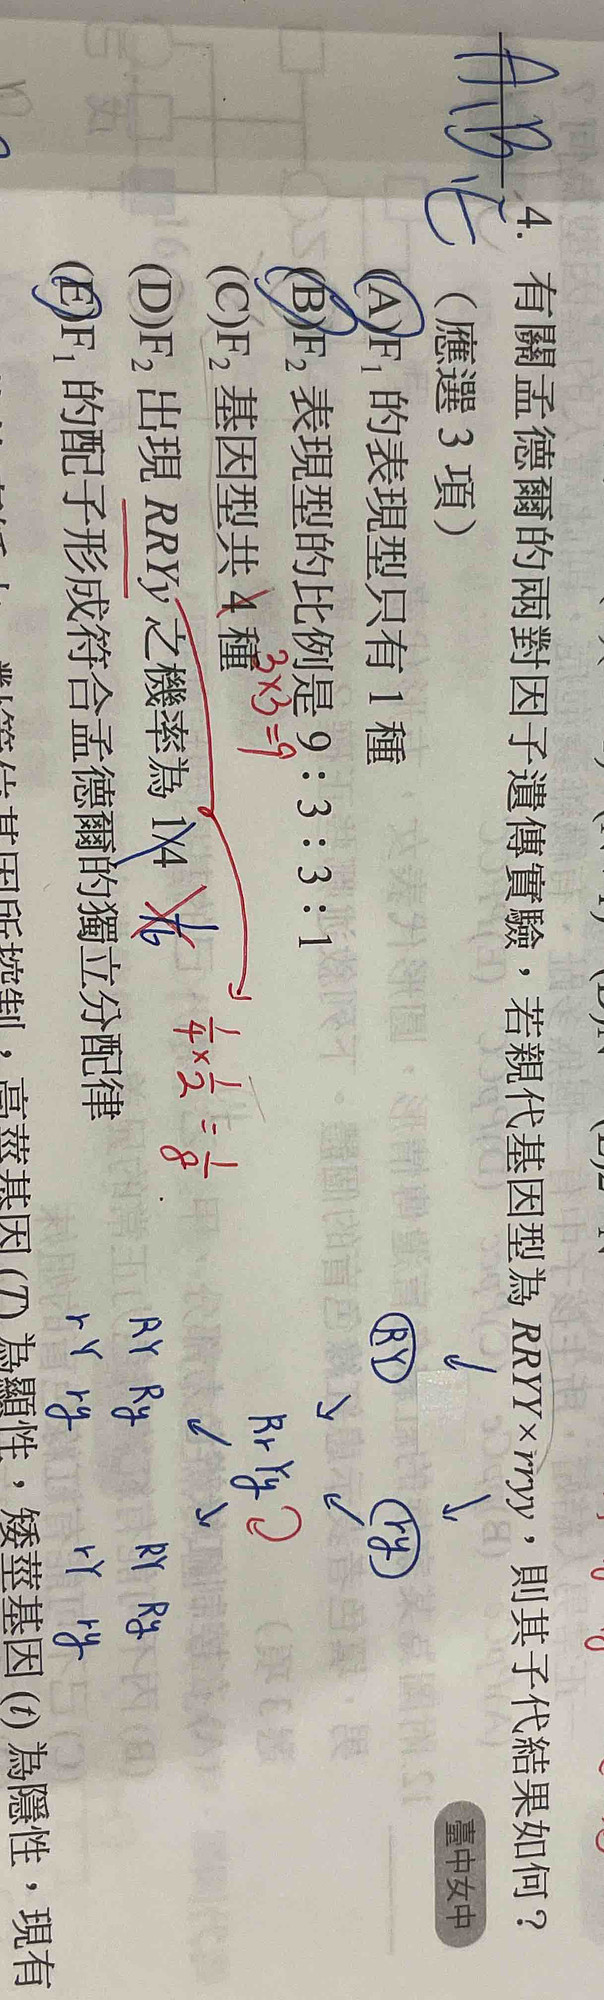 ABE
4. 有關孟德爾的兩對因子遺傳實驗，若親代基因型為 RRYY×rryy，則其子代結果如何？
（應選 3 項）
臺中女中
(A)F₁ 的表現型只有 1 種
RY ry
(B)F₂ 表現型的比例是 9：3：3：1
3×3=9
RrYy
(C)F₂ 基因型共 4 種
1/4 × 1/2 = 1/8
(D)F₂ 出現 RRYy 之機率為 1/4
RY Ry RY Ry
(E)F₁ 的配子形成符合孟德爾的獨立分配律
rY ry rY ry
對等位基因所控制，高莖基因 (T) 為顯性，矮莖基因 (t) 為隱性，現有